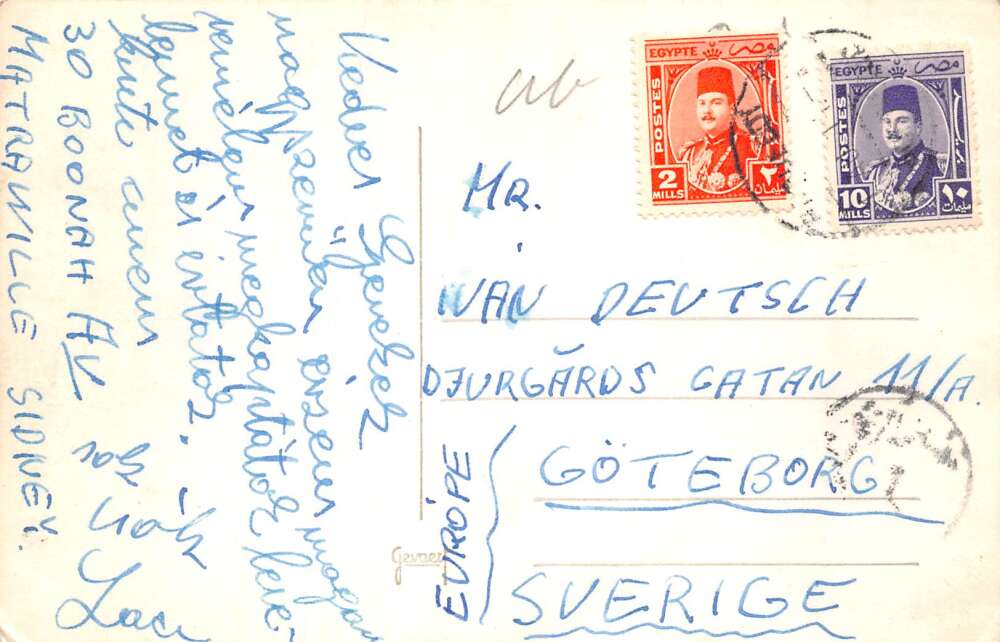 Kedves Gyerekek
nagyszerűen érzem magam
remélem megkaptátok leve-
lemet és írtatok.
címem
30 BOONAH AV
MATRAVILLE SIDNEY.
sok csók
Laci
EGYPTE مصر
POSTES
2 MILLS
٢ مليمان
EGYPTE مصر
POSTES
10 MILLS
١٠
MR.
IVAN DEUTSCH
DJURGÅRDS GATAN 11/A.
GÖTEBORG
EURÓPE
SVERIGE
Gevaert